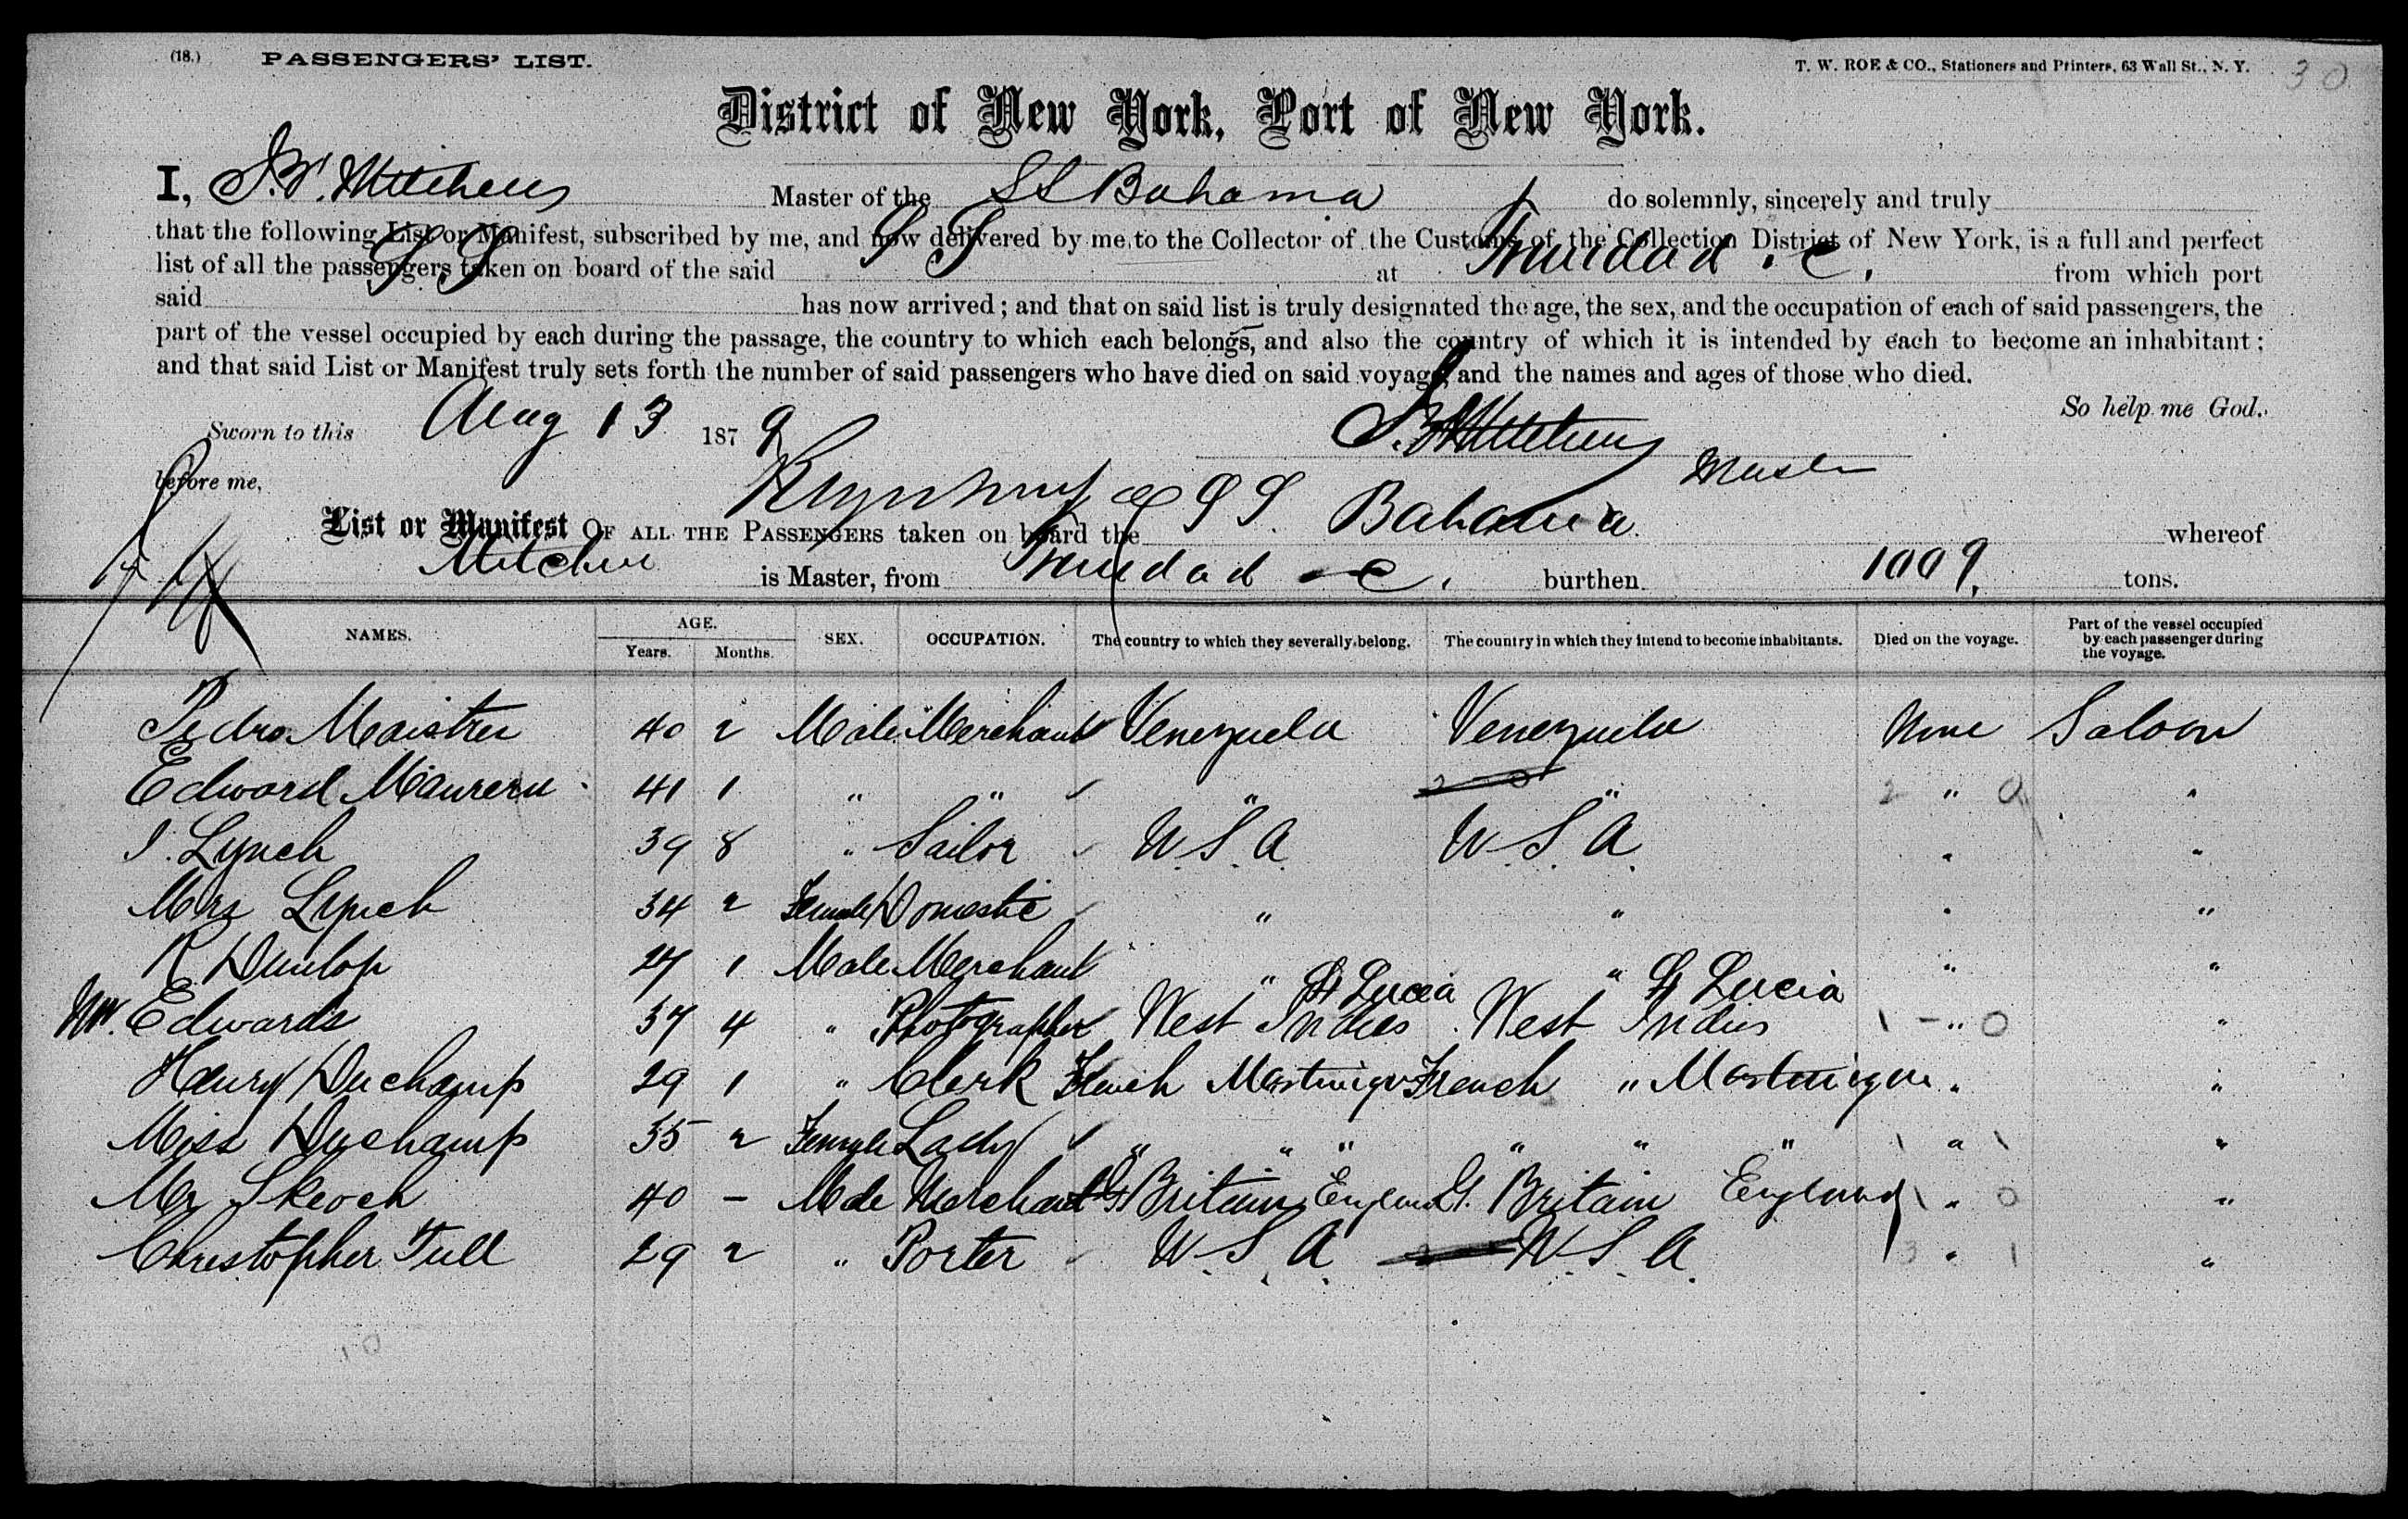 (18.) PASSENGERS' LIST. T. W. ROE & CO., Stationers and Printers, 63 Wall St., N. Y. 30
District of New York, Port of New York.
I, Master of the SS Bahama do solemnly, sincerely and truly
that the following List or Manifest, subscribed by me, and now delivered by me to the Collector of the Customs of the Collection District of New York, is a full and perfect
list of all the passengers taken on board of the said S S at Trinidad &c. from which port
said S.S has now arrived; and that on said list is truly designated the age, the sex, and the occupation of each of said passengers, the
part of the vessel occupied by each during the passage, the country to which each belongs, and also the country of which it is intended by each to become an inhabitant;
and that said List or Manifest truly sets forth the number of said passengers who have died on said voyage, and the names and ages of those who died.
So help me God.
Sworn to this Aug 13 1879
before me, Master
List or Manifest OF ALL THE PASSENGERS taken on board the S S. Bahama whereof
is Master, from Trinidad &c. burthen 1009. tons.
NAMES. AGE. Years. Months. SEX. OCCUPATION. The country to which they severally belong. The country in which they intend to become inhabitants. Died on the voyage. Part of the vessel occupied by each passenger during the voyage.
Pedro 40 2 Male Merchant Venezuela Venezuela None Saloon
Edward 41 1 " " " " " "
J. Lynch 39 8 " Sailor U.S.A. U.S.A. " "
Mrs Lynch 34 2 Female Domestic " " " "
R Dunlop 27 1 Male Merchant " " " "
Mr. Edwards 37 4 " Photographer West Indies St Lucia West Indies St Lucia " "
Henry Duchamp 29 1 " Clerk French Martinique French " Martinique " "
Miss Duchamp 35 2 Female Lady " " " " " " " "
Mr Skeoch 40 - Male Merchant Gt Britain England G. Britain England " "
Christopher Tull 29 2 " Porter U.S.A. U.S.A. " "
10